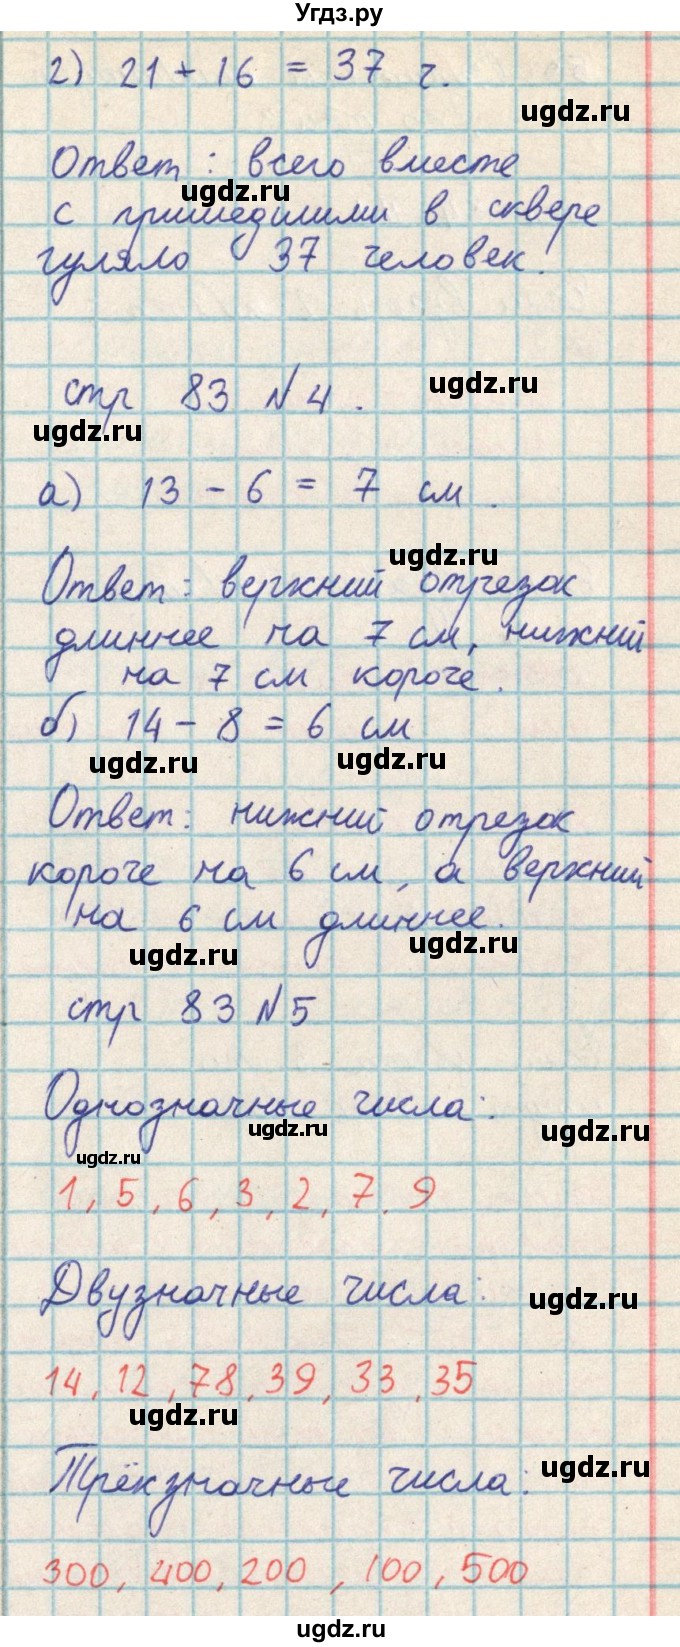 Угдз.ру
2) 21 + 16 = 37 ч.
ugdz.ru
Ответ: всего вместе
ugdz.ru
с пришедшими в сквере
гуляло 37 человек.
ugdz.ru
стр 83 №4.
ugdz.ru
а) 13 - 6 = 7 см.
ugdz.ru
Ответ: верхний отрезок
длиннее на 7 см, нижний
на 7 см короче.
б) 14 - 8 = 6 см
ugdz.ru ugdz.ru
Ответ: нижний отрезок
короче на 6 см, а верхний
на 6 см длиннее.
ugdz.ru ugdz.ru
стр 83 №5
Однозначные числа:
ugdz.ru ugdz.ru
ugdz.ru
1, 5, 6, 3, 2, 7, 9
Двузначные числа:
ugdz.ru
14, 12, 78, 39, 33, 35
ugdz.ru
Трёхзначные числа:
ugdz.ru
300, 400, 200, 100, 500
ugdz.ru